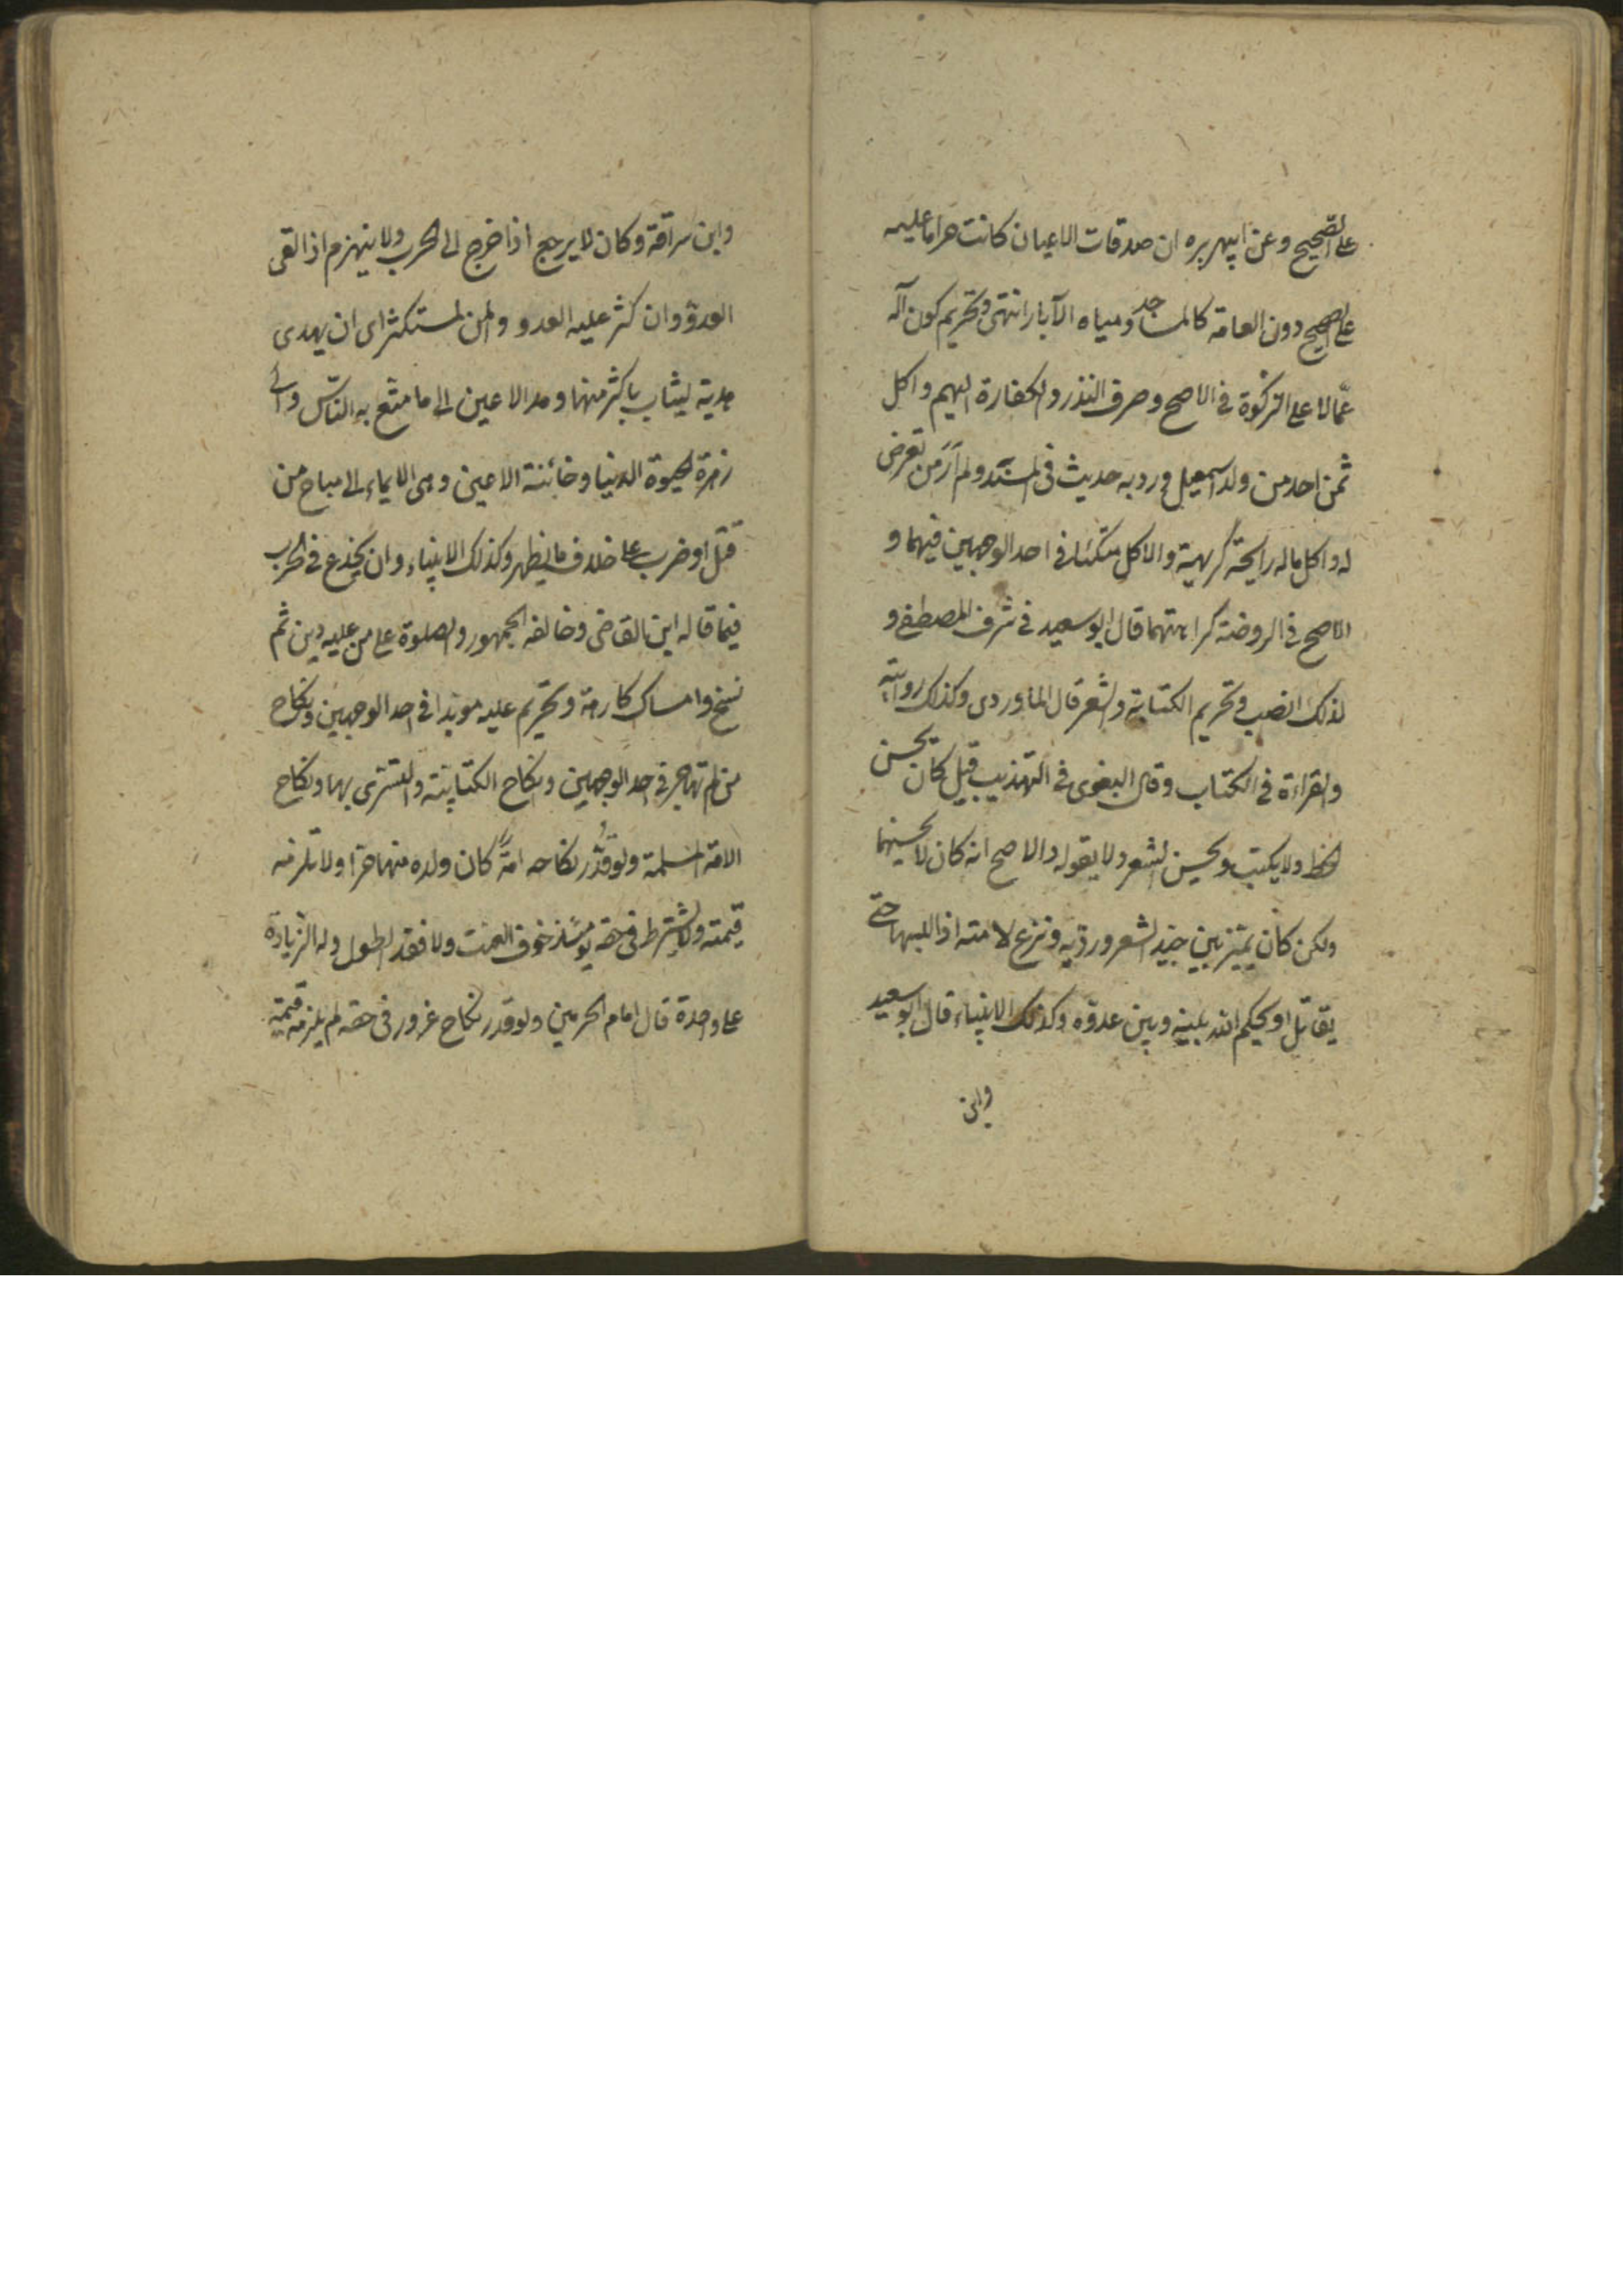 على الصحيح وعن ابيهريره ان صدقات الاعيان كانت حراما عليه
على الصحيح دون العامة كالمساجد ومياه الآبار انتهى وتحريم كون آله
عمّالا على الزكوة فى الاصح وصرف النذر والكفارة اليهم واكل
ثمن احد من ولد اسمعيل ورد به حديث فى المسند ولم أر من تعرض
له واكل ماله رايحة كريهة والاكل متكئا فى احد الوجهين فيهما و
الاصح فى الروضة كراهتهما قال ابو سعيد فى شرف المصطفى و
لذلك الضب وتحريم الكتابة والشعر قال الماوردى وكذلك روايته
والقراءة فى الكتاب وقال البغوى فى التهذيب قيل كان يحسن
الخط ولا يكتب ويحسن الشعر ولا يقوله والاصح انه كان لا يحسنهما
ولكن كان يميز بين جيد الشعر ورديه ونزع لامته اذا لبسها حتى
يقاتل او يحكم الله بينه وبين عدوّه وكذلك الانبياء قال ابو سعيد
وابن
وابن سراقة وكان لا يرجع اذا خرج الى الحرب ولا ينهزم اذا لقى
العدوّ وان كثر عليه العدو والمن ليستكثر اى ان يهدى
هدية ليثاب باكثر منها ومد الاعين الى ما متع به الناس و
زهرة الحيوة الدنيا وخائنة الاعين وهى الايماء الى مباح من
قتل او ضرب على خلاف ما يظهر وكذلك الانبياء وان يخدع فى الحرب
فيما قاله ابن القاضى وخالفه الجمهور والصلوة على من عليه دين ثم
نسخ وامساك كارهة وتحريم عليه موبدا فى احد الوجهين ونكاح
من لم تهاجر فى احد الوجهين ونكاح الكتابية والتسرى بها ونكاح
الامة المسلمة ولو قُدّر نكاحه امةً كان ولده منها حرا ولا تلزمه
قيمته ولا يشترط فى حقه يومئذ خوف العنت ولا فقد الطول وله الزيادة
على واحدة قال امام الحرمين ولو قدر نكاح غرور فى حقه لم يلزمه قيمة